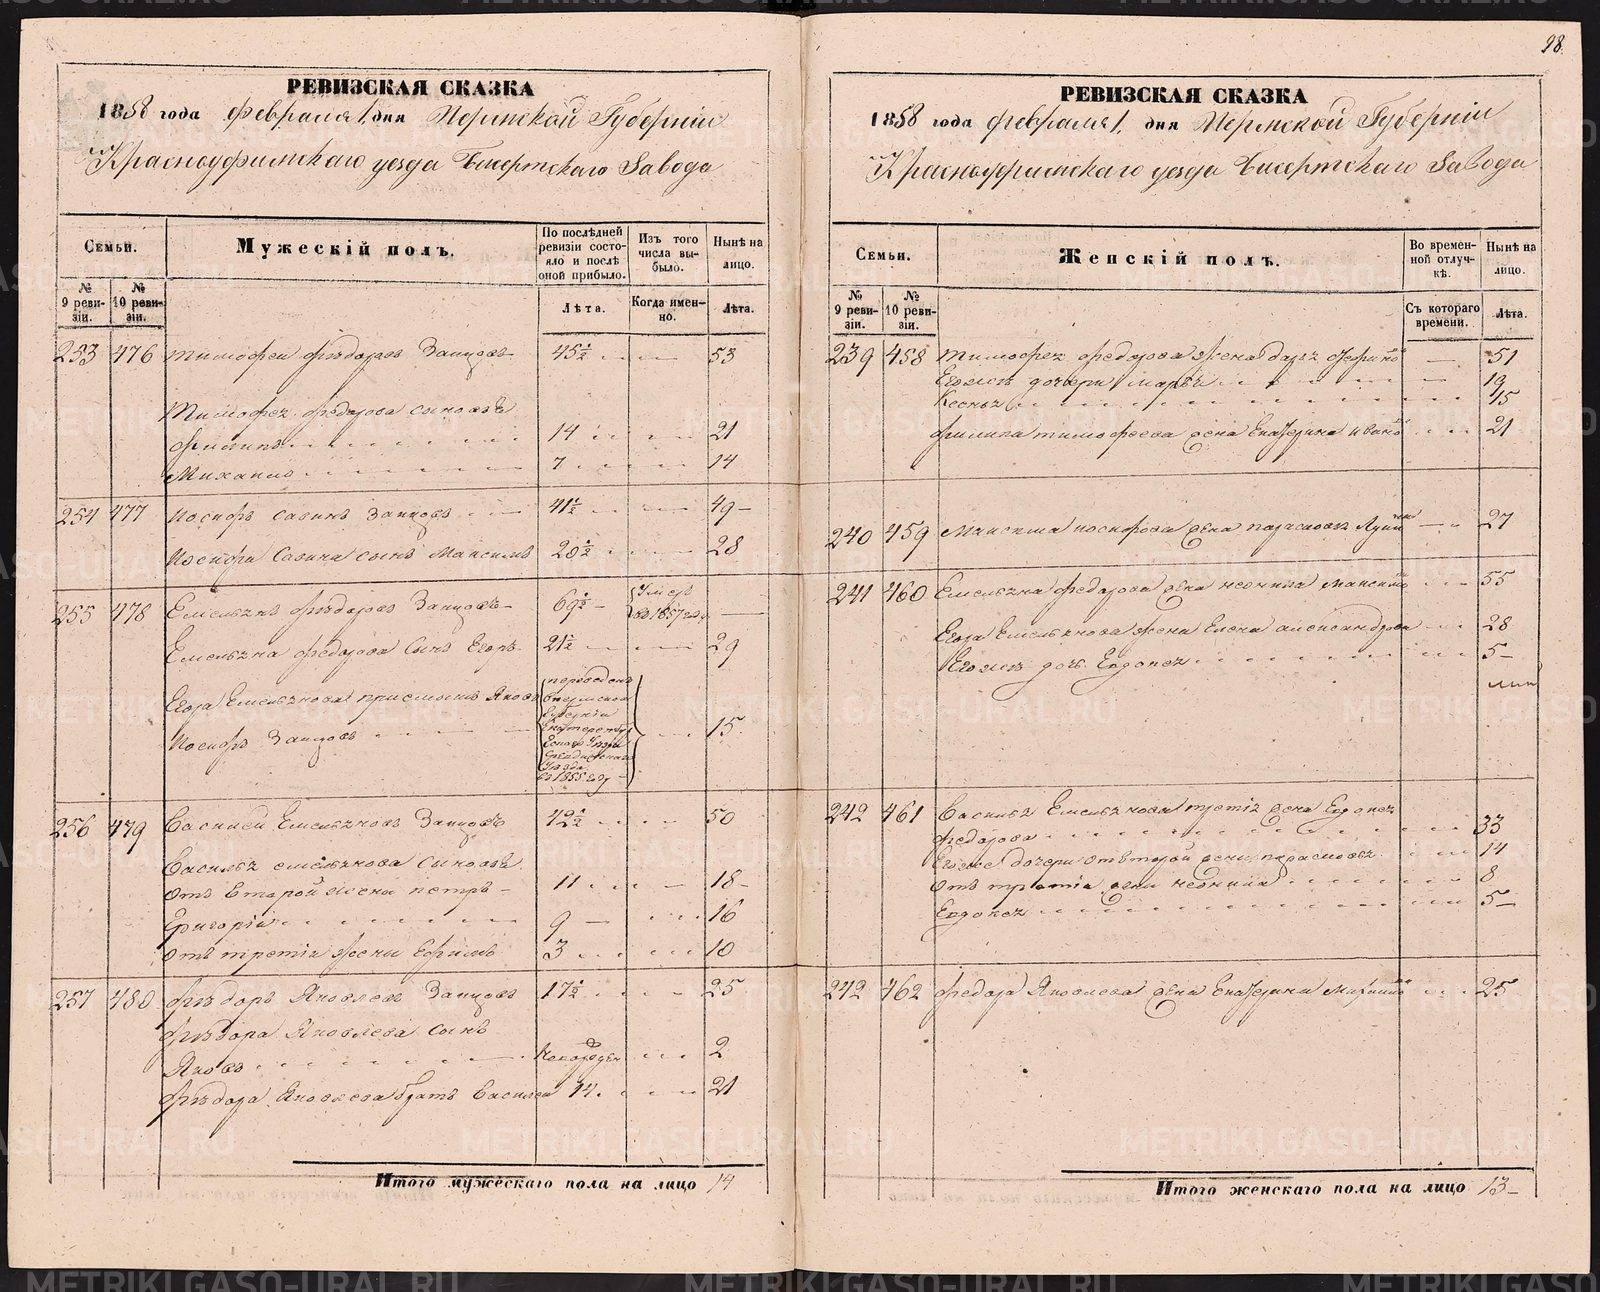 98.
РЕВИЗСКАЯ СКАЗКА
1858 года февраля 1 дня Пермской Губерніи
Красноуфимскаго уезда Бисертскаго Завода
Семьи.
Мужескій полъ.
По послѣдней ревизіи состояло и послѣ оной прибыло.
Изъ того числа выбыло.
Нынѣ на лицо.
№ 9 ревизіи.
№ 10 ревизіи.
Лѣта.
Когда именно.
Лѣта.
253 476 Тимофей Фѣдоровъ Зайцовъ 45½ 53
Тимофея Федорова сыновья
Филипъ 14 21
Михаило 7 14
254 477 Иосифъ Савинъ Зайцовъ 41½ 49
Иосифа Савина сынъ Максимъ 20½ 28
255 478 Емельянъ Фѣдоровъ Зайцовъ 69½ Умеръ въ 1857 году
Емельяна Федорова сынъ Егоръ 21½ 29
Егора Емельянова приемышъ Яковъ
Иосифъ Зайцовъ 15
переведенъ
Губерніи
Уезда
въ 1855 году
256 479 Василей Емельяновъ Зайцовъ 42½ 50
Василья Емельянова сыновья
отъ второй жены Петръ 11 18
Григорій 9 16
отъ третіи жены Ефимъ 3 10
257 480 Фѣдоръ Яковлевъ Зайцовъ 17½ 25
Фѣдора Яковлева сынъ
Яковъ Новорожден 2
Фѣдора Яковлева братъ Василей 14 21
Итого мужескаго пола на лицо 14
РЕВИЗСКАЯ СКАЗКА
1858 года февраля 1 дня Пермской Губерніи
Красноуфимскаго уезда Бисертскаго Завода
Семьи.
Женскій полъ.
Во временной отлучкѣ.
Нынѣ на лицо.
№ 9 ревизіи.
№ 10 ревизіи.
Съ котораго времени.
Лѣта.
239 458 Тимофея Федорова жена Дарья 51
Егожъ дочери Марья 19
Ксенья 15
Филипа Тимофеева жена Екатерина Иванова 21
240 459 Максима Иосифова жена Парасковья 27
241 460 Емельяна Федорова жена Неонила Максимова 55
Егора Емельянова жена Елена Александрова 28
Егожъ дочь Евдокея 5
242 461 Василья Емельянова третія жена Евдокея
Федорова 33
Егожъ дочери отъ второй жены Парасковья 14
отъ третіи жены Неонила 8
Евдокея 5
242 462 Федора Яковлева жена Екатерина Михайлова 25
Итого женскаго пола на лицо 13
METRIKI.GASO-URAL.RU